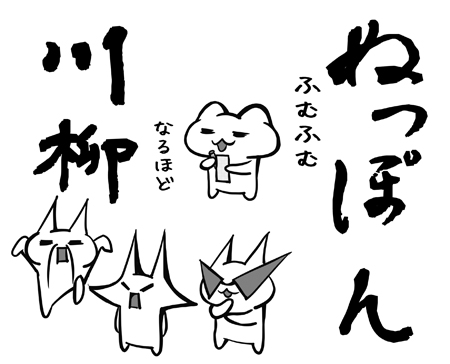 ねっぽん
ふむふむ
なるほど
川柳